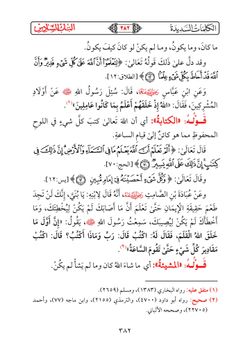 الكلمات السديدة
٣٨٢
ما كان، وما يكون، وما لم يكن لو كان كيف يكون.
وقد دل على ذلك قوله تعالى: ﴿لِتَعْلَمُوا أَنَّ اللَّهَ عَلَى كُلِّ شَيْءٍ قَدِيرٌ وَأَنَّ
اللَّهَ قَدْ أَحَاطَ بِكُلِّ شَيْءٍ عِلْمًا﴾ [الطلاق: ١٢].
وعن ابن عباس قال: سئل رسول الله ﷺ عن أولاد
المشركين، فقال: «اللهُ إِذْ خَلَقَهُمْ أَعْلَمُ بِمَا كَانُوا عَامِلِينَ»(١).
قوله: «الكتابة»: أي أن الله تعالى كتب كل شيء في اللوح
المحفوظ مما هو كائن إلى قيام الساعة.
قال تعالى: ﴿أَلَمْ تَعْلَمْ أَنَّ اللَّهَ يَعْلَمُ مَا فِي السَّمَاءِ وَالْأَرْضِ إِنَّ ذَلِكَ فِي
كِتَابٍ إِنَّ ذَلِكَ عَلَى اللَّهِ يَسِيرٌ﴾ [الحج: ٧٠].
وقال تعالى: ﴿وَكُلَّ شَيْءٍ أَحْصَيْنَاهُ فِي إِمَامٍ مُبِينٍ﴾ [يس: ١٢].
وعن عبادة بن الصامت، أنه قال لابنه: يا بني، إنك لن تجد
طعم حقيقة الإيمان حتى تعلم أن ما أصابك لم يكن ليخطئك، وما
أخطأك لم يكن ليصيبك، سمعت رسول الله ﷺ، يقول: «إِنَّ أَوَّلَ مَا
خَلَقَ اللهُ الْقَلَمَ، فَقَالَ لَهُ: اكْتُبْ، قَالَ: رَبِّ وَمَاذَا أَكْتُبُ؟ قَالَ: اكْتُبْ
مَقَادِيرَ كُلِّ شَيْءٍ حَتَّى تَقُومَ السَّاعَةُ»(٢).
قوله: «المشيئة»: أي ما شاء الله كان وما لم يشأ لم يكن.
(١) متفق عليه: رواه البخاري (١٣٨٣)، ومسلم (٢٦٥٩).
(٢) صحيح: رواه أبو داود (٤٧٠٠)، والترمذي (٢١٥٥)، وابن ماجه (٧٧)، وأحمد
(٢٢٧٠٥)، وصححه الألباني.
٣٨٢